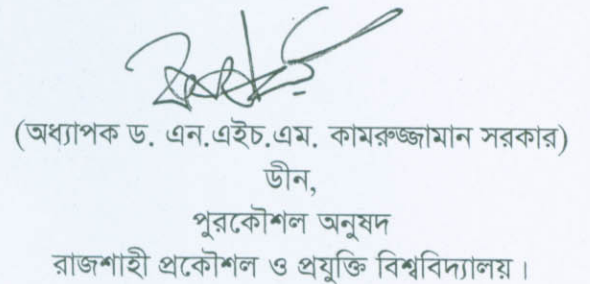 (অধ্যাপক ড. এন.এইচ.এম. কামরুজ্জামান সরকার)
ডীন,
পুরকৌশল অনুষদ
রাজশাহী প্রকৌশল ও প্রযুক্তি বিশ্ববিদ্যালয়।